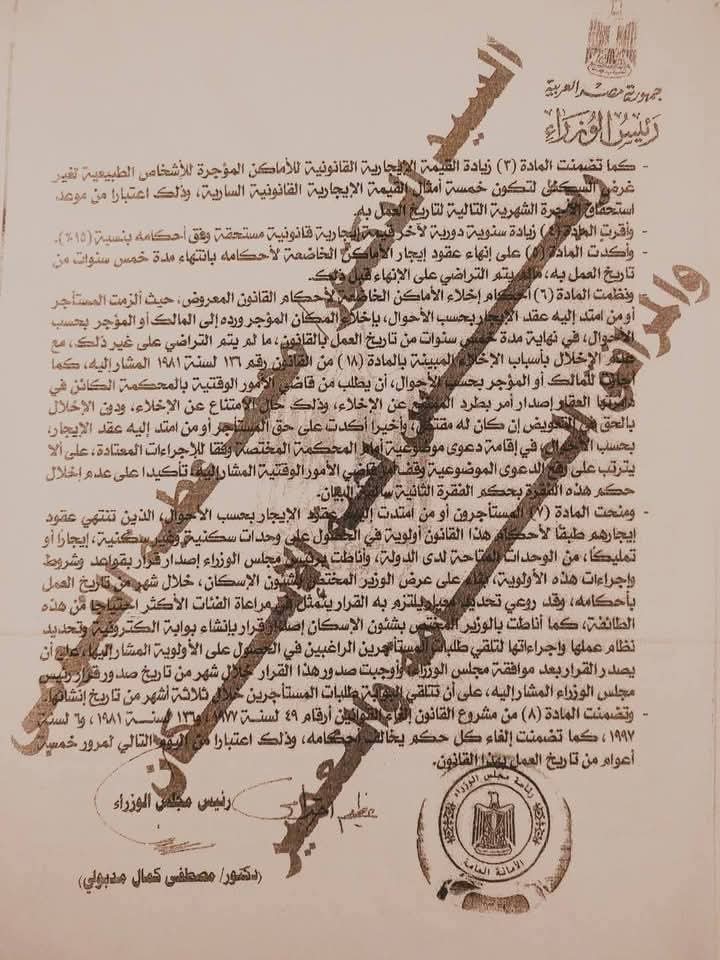 جمهورية مصر العربية
رئيس الوزراء
- كما تضمنت المادة (٣) زيادة القيمة الإيجارية القانونية للأماكن المؤجرة للأشخاص الطبيعية لغير
غرض السكنى لتكون خمسة أمثال القيمة الإيجارية القانونية السارية، وذلك اعتبارا من موعد
استحقاق الأجرة الشهرية التالية لتاريخ العمل به.
- وأقرت المادة (٤) زيادة سنوية دورية لآخر قيمة إيجارية قانونية مستحقة وفق أحكامه بنسبة (١٥٪).
- وأكدت المادة (٥) على إنهاء عقود إيجار الأماكن الخاضعة لأحكامه بانتهاء مدة خمس سنوات من
تاريخ العمل به، ما لم يتم التراضي على الإنهاء قبل ذلك.
- ونظمت المادة (٦) أحكام إخلاء الأماكن الخاضعة لأحكام القانون المعروض، حيث ألزمت المستأجر
أو من امتد إليه عقد الإيجار بحسب الأحوال، بإخلاء المكان المؤجر ورده إلى المالك أو المؤجر بحسب
الأحوال، في نهاية مدة خمس سنوات من تاريخ العمل بالقانون، ما لم يتم التراضي على غير ذلك، مع
عدم الإخلال بأسباب الإخلاء المبينة بالمادة (١٨) من القانون رقم ١٣٦ لسنة ١٩٨١ المشار إليه، كما
أجازت للمالك أو المؤجر بحسب الأحوال، أن يطلب من قاضي الأمور الوقتية بالمحكمة الكائن في
دائرتها العقار إصدار أمر بطرد الممتنع عن الإخلاء، وذلك حال الامتناع عن الإخلاء، ودون الإخلال
بالحق في التعويض إن كان له مقتضى، وأخيرا أكدت على حق المستأجر أو من امتد إليه عقد الإيجار،
بحسب الأحوال، في إقامة دعوى موضوعية أمام المحكمة المختصة وفقا للإجراءات المعتادة، على ألا
يترتب على رفع الدعوى الموضوعية وقف أمر قاضي الأمور الوقتية المشار إليه، تأكيدا على عدم إخلال
حكم هذه الفقرة بحكم الفقرة الثانية سالفة البيان.
- ومنحت المادة (٧) المستأجرون أو من امتدت إليهم عقود الإيجار بحسب الأحوال، الذين تنتهي عقود
إيجارهم طبقًا لأحكام هذا القانون أولوية في الحصول على وحدات سكنية وغير سكنية، إيجارًا أو
تمليكًا، من الوحدات المتاحة لدى الدولة، وأناطت برئيس مجلس الوزراء إصدار قرار بقواعد وشروط
وإجراءات هذه الأولوية، بناء على عرض الوزير المختص بشئون الإسكان، خلال شهر من تاريخ العمل
بأحكامه، وقد روعي تحديد معيار يلتزم به القرار يتمثل في مراعاة الفئات الأكثر احتياجا من هذه
الطائفة، كما أناطت بالوزير المختص بشئون الإسكان إصدار قرار بإنشاء بوابة الكترونية وتحديد
نظام عملها وإجراءاتها لتلقي طلبات المستأجرين الراغبين في الحصول على الأولوية المشار إليها، على أن
يصدر القرار بعد موافقة مجلس الوزراء، وأوجبت صدور هذا القرار خلال شهر من تاريخ صدور قرار رئيس
مجلس الوزراء المشار إليه، على أن تتلقى البوابة طلبات المستأجرين خلال ثلاثة أشهر من تاريخ إنشائها.
- وتضمنت المادة (٨) من مشروع القانون إلغاء القوانين أرقام ٤٩ لسنة ١٩٧٧، و١٣٦ لسنة ١٩٨١، و٦ لسنة
١٩٩٧، كما تضمنت إلغاء كل حكم يخالف أحكامه، وذلك اعتبارا من اليوم التالي لمرور خمسة
أعوام من تاريخ العمل بهذا القانون.
رئيس مجلس الوزراء
(دكتور/ مصطفى كمال مدبولي)
رئاسة مجلس الوزراء
الأمانة العامة